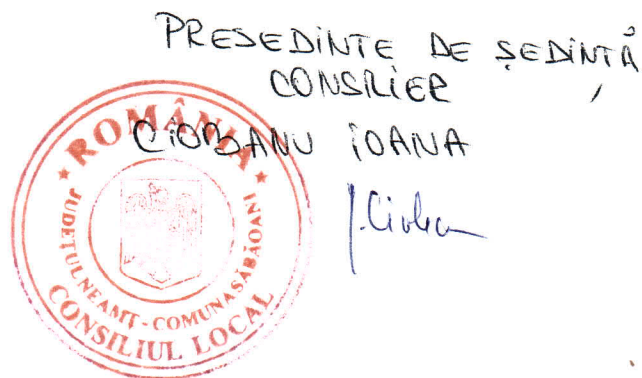 PRESEDINTE DE ȘEDINȚĂ
CONSILIER
CIOBANU IOANA
* ROMÂNIA *
JUDEȚUL NEAMȚ - COMUNA SĂBĂOANI
CONSILIUL LOCAL